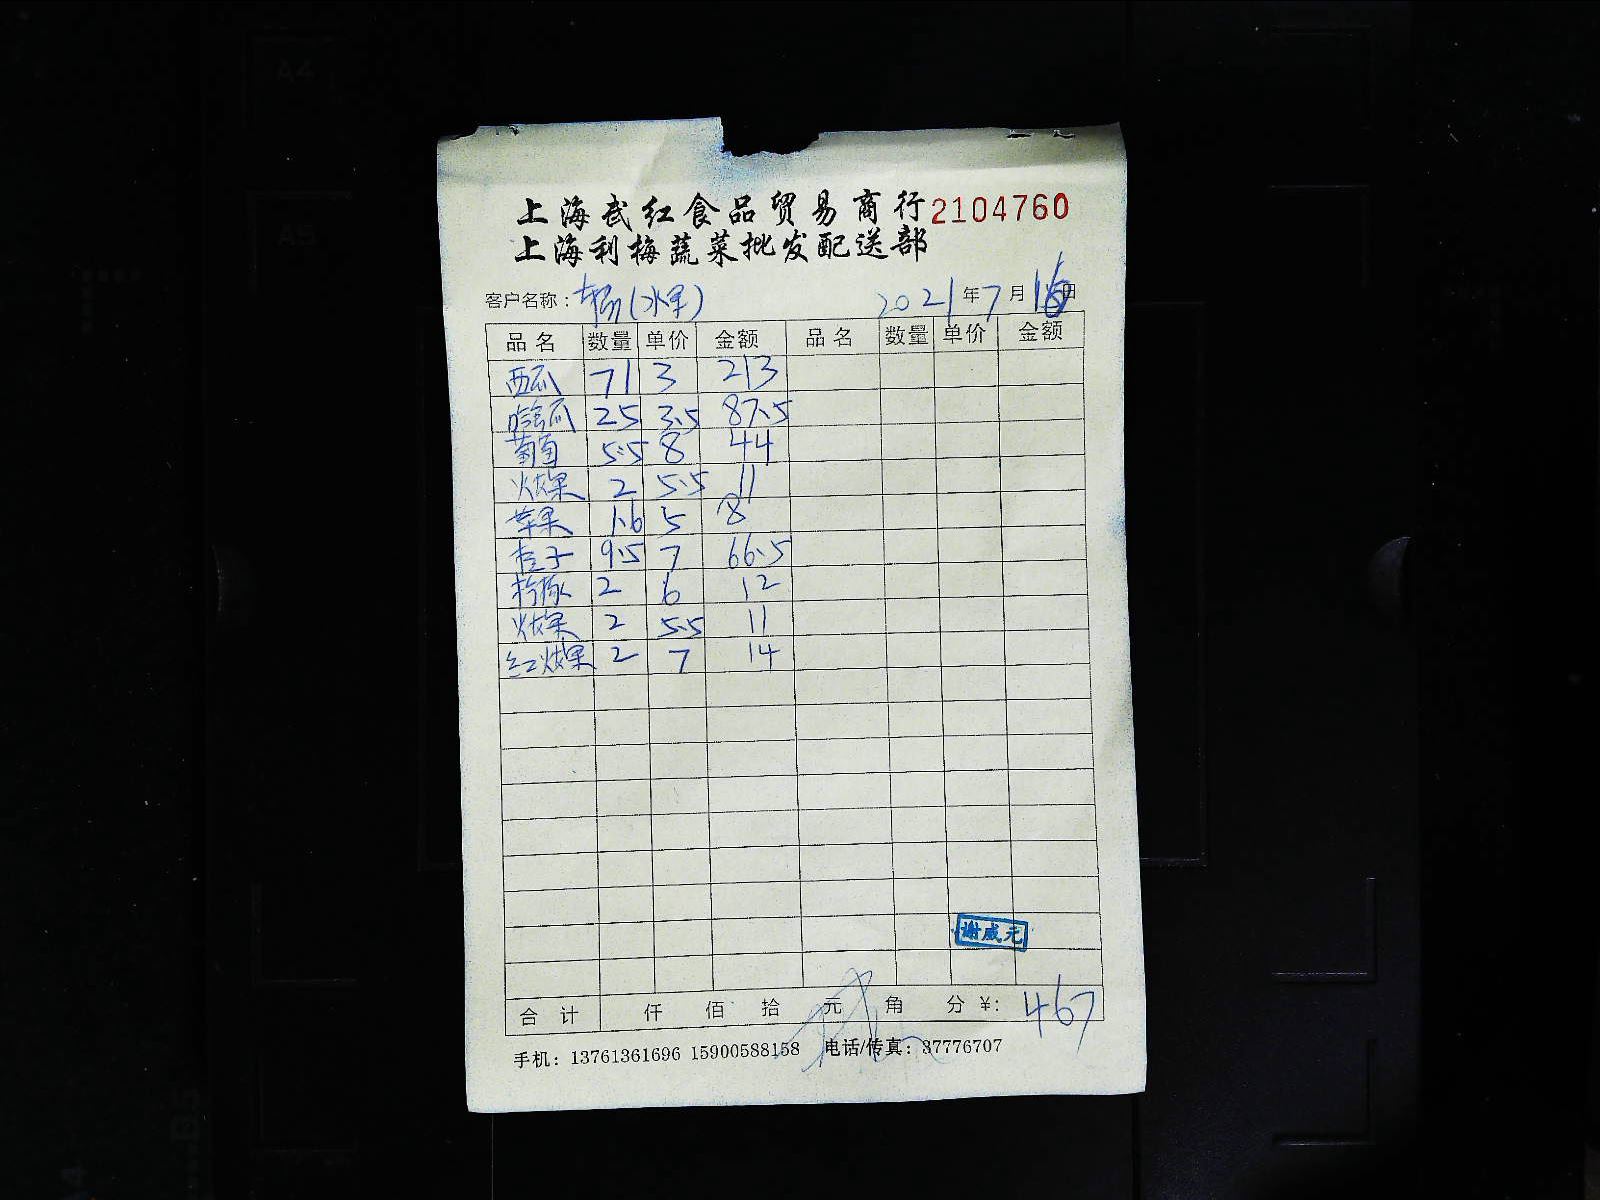 上海武红食品贸易商行 2104760
上海利梅蔬菜批发配送部
客户名称：杨(水果) 2021年7月16日
品名 数量 单价 金额 品名 数量 单价 金额
西瓜 71 3 213
哈密瓜 25 3.5 87.5
葡萄 5.5 8 44
火龙果 2 5.5 11
苹果 1.6 5 8
桔子 9.5 7 66.5
柠檬 2 6 12
火龙果 2 5.5 11
红火龙果 2 7 14
谢威元
合计 仟 佰 拾 元 角 分 ¥: 467
手机：13761361696 15900588158 电话/传真：37776707